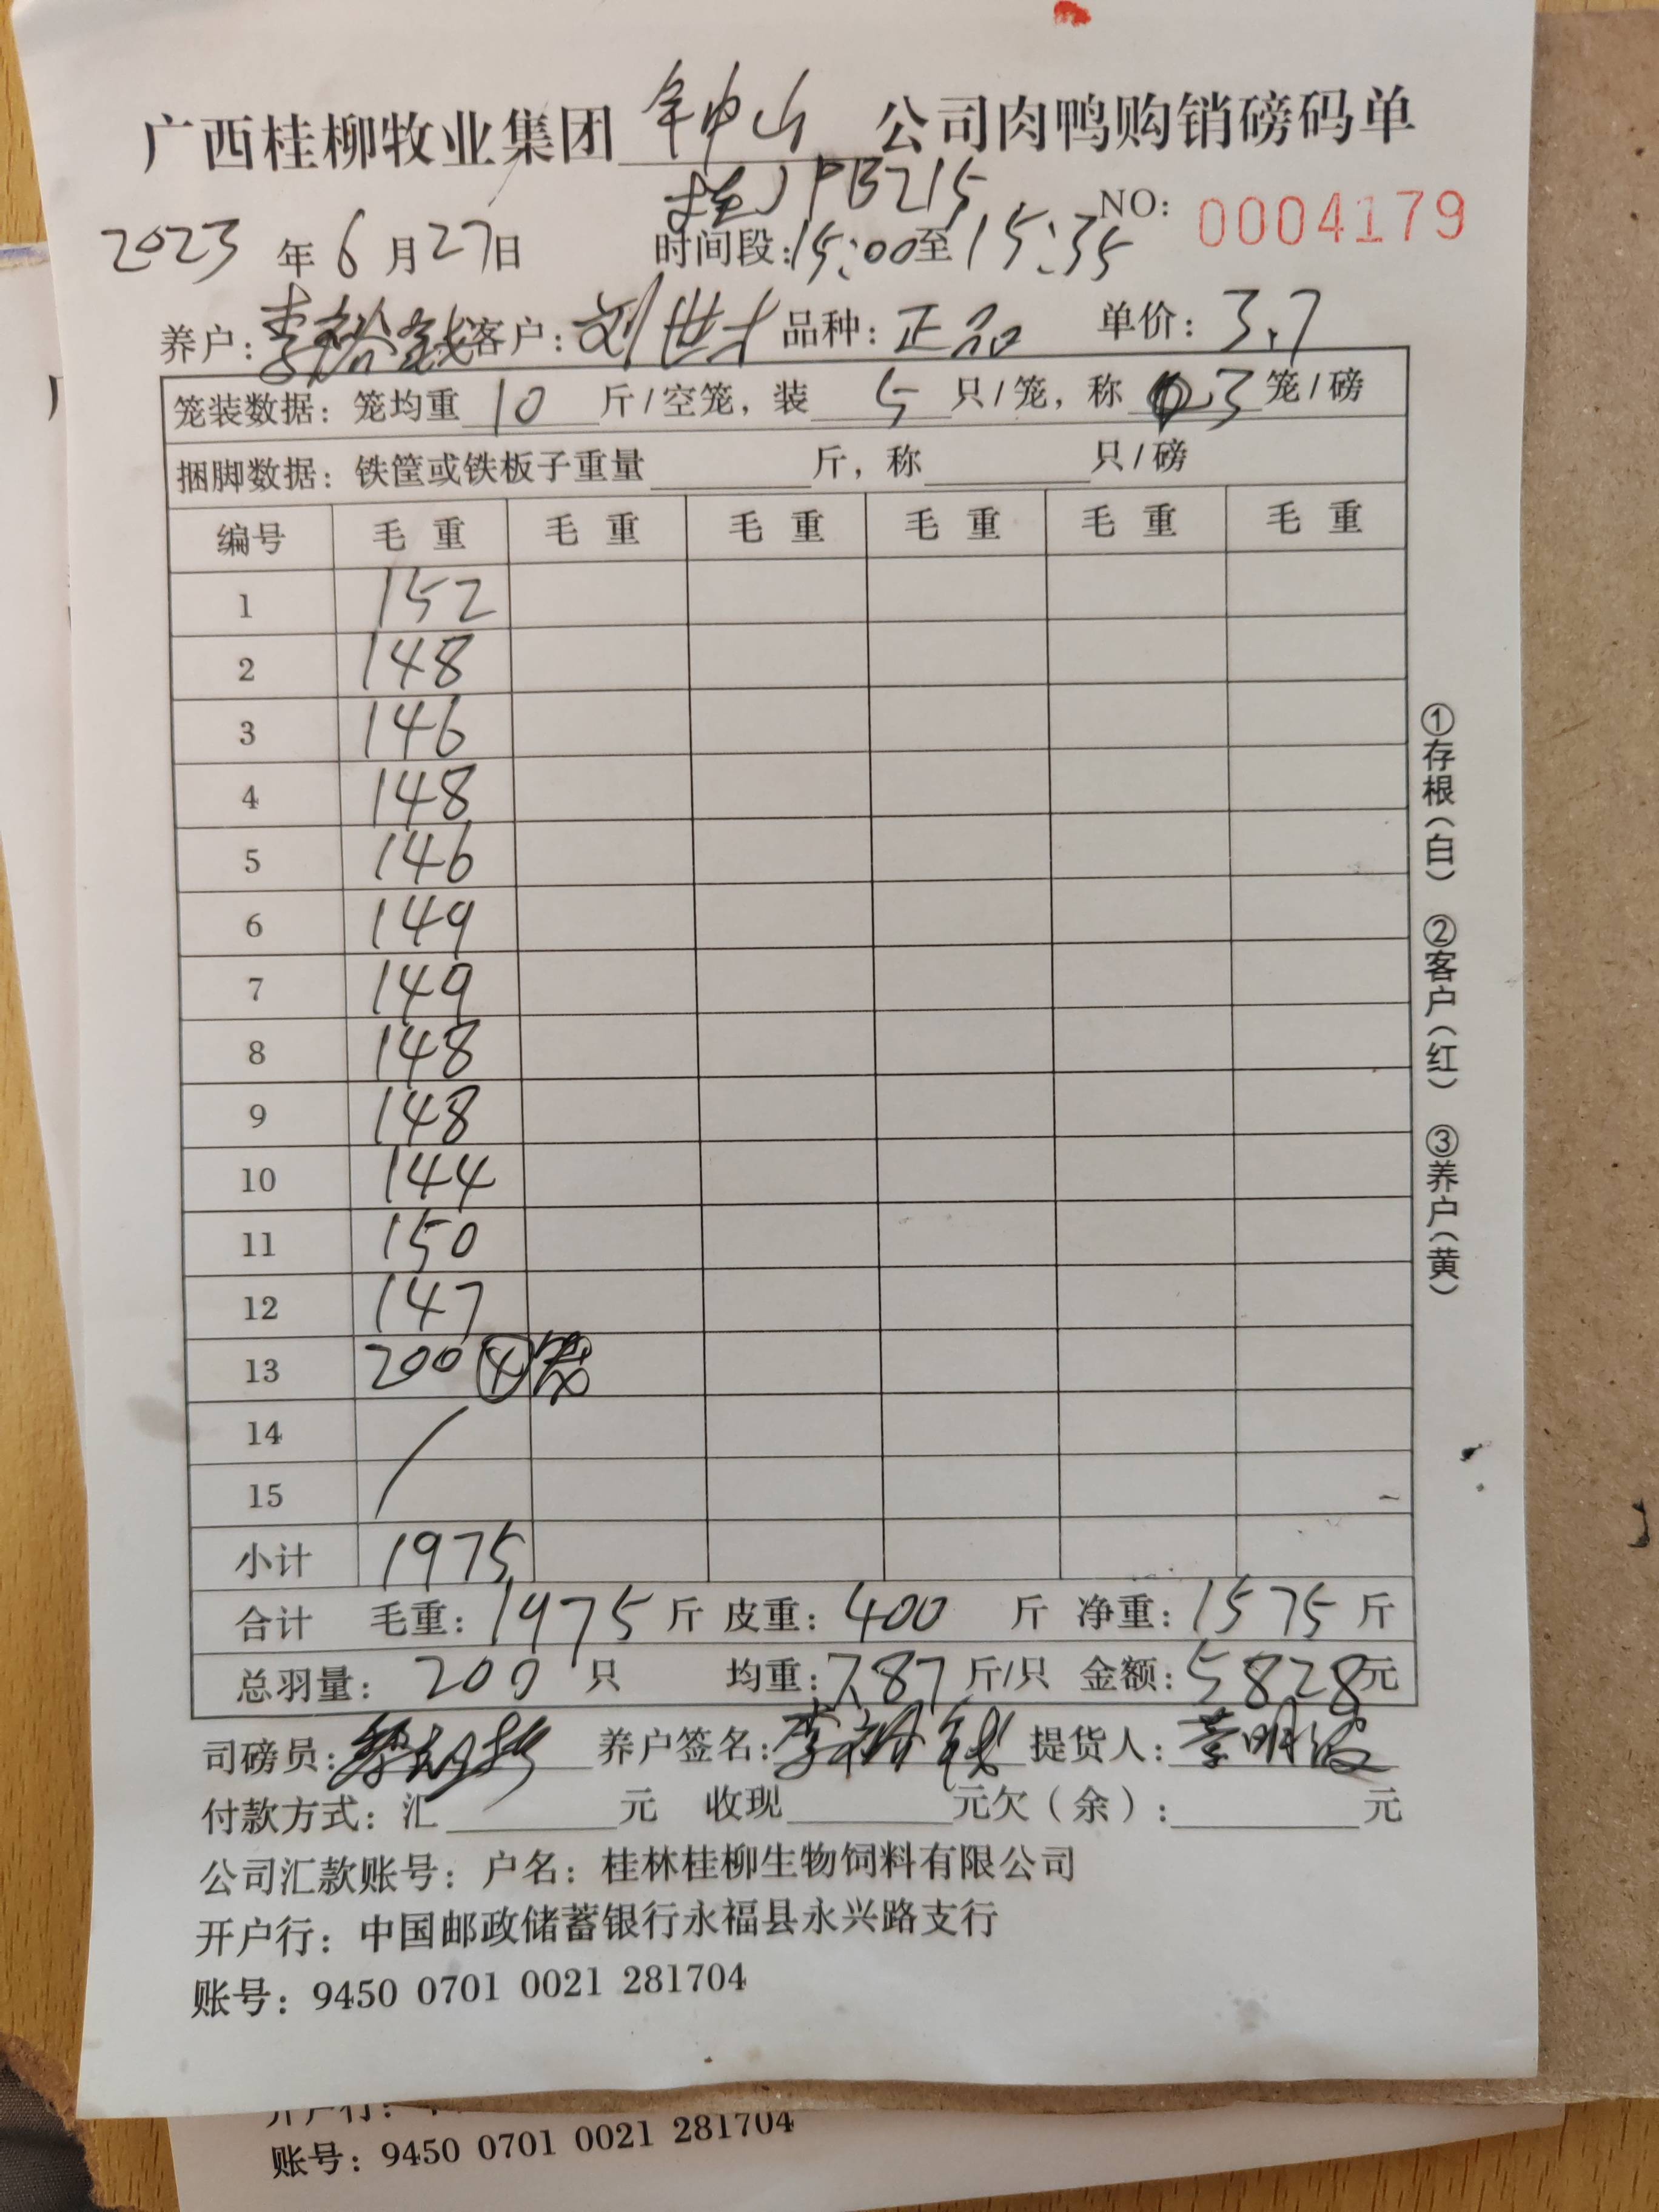 广西桂柳牧业集团 钟山 公司肉鸭购销磅码单
桂JPB215
NO: 0004179
2023 年 6 月 27 日 时间段: 15:00 至 15:35
养户: 李裕钱 客户: 刘世才 品种: 正品 单价: 3.7
笼装数据: 笼均重 10 斤/空笼, 装 5 只/笼, 称 3 笼/磅
捆脚数据: 铁筐或铁板子重量 斤, 称 只/磅
编号 毛重 毛重 毛重 毛重 毛重 毛重
1 152
2 148
3 146
4 148
5 146
6 149
7 149
8 148
9 148
10 144
11 150
12 147
13 200 ④
14
15
小计 1975
合计 毛重: 1975 斤 皮重: 400 斤 净重: 1575 斤
总羽量: 200 只 均重: 7.87 斤/只 金额: 5828 元
司磅员: 养户签名: 李裕钱 提货人:
付款方式: 汇 元 收现 元欠(余): 元
公司汇款账号: 户名: 桂林桂柳生物饲料有限公司
开户行: 中国邮政储蓄银行永福县永兴路支行
账号: 9450 0701 0021 281704
①存根(白) ②客户(红) ③养户(黄)
开户行:
账号: 9450 0701 0021 281704